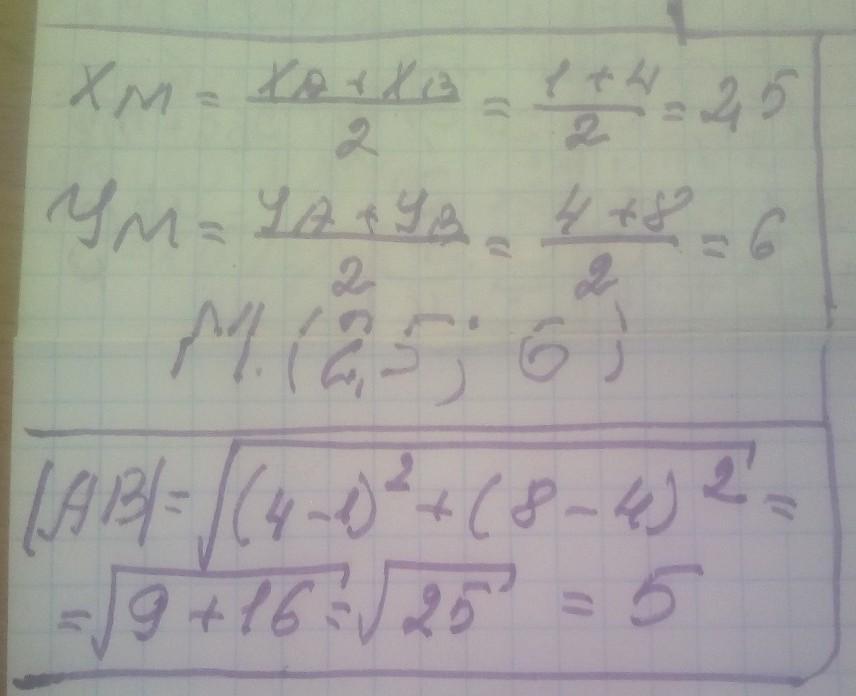 Xм = (XA + XB)/2 = (1 + 4)/2 = 2,5
Yм = (YA + YB)/2 = (4 + 8)/2 = 6
M. (2,5; 6)
|AB| = √((4 - 1)² + (8 - 4)²) =
= √(9 + 16) = √25 = 5